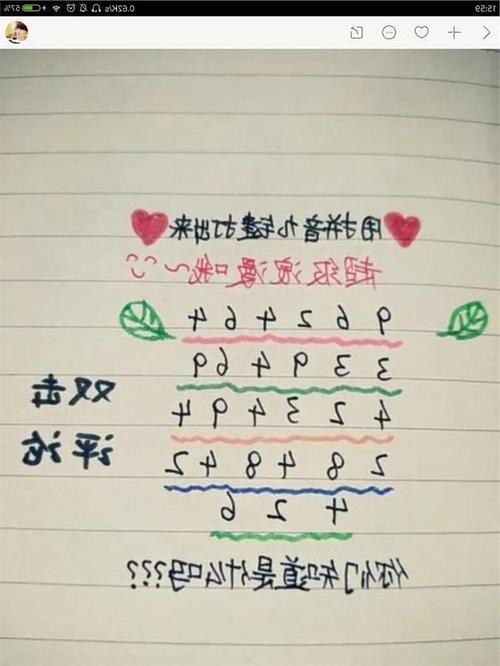 15:59 0.62K/s 57%
用拼音九键打出来
超级浪漫哦~
9 6 2 4 6 4
3 3 9 4 6 9
4 2 3 4 9 4
2 8 4 8 4 2
4 2 6
双击
评论
你们知道是什么吗????